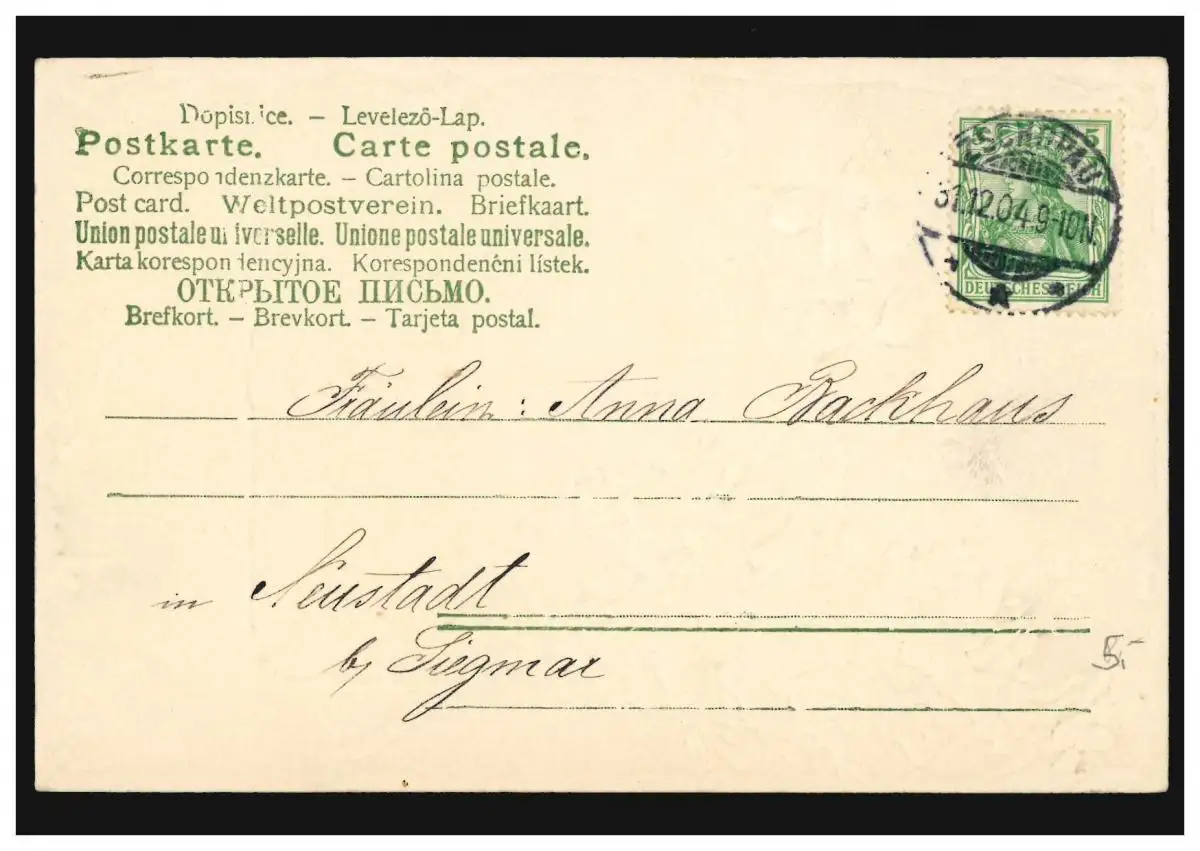 Dopisnice. – Levelező-Lap.
Postkarte. Carte postale.
Correspondenzkarte. – Cartolina postale.
Post card. Weltpostverein. Briefkaart.
Union postale universelle. Unione postale universale.
Karta korespondencyjna. Korespondenčni lístek.
ОТКРЫТОЕ ПИСЬМО.
Brefkort. – Brevkort. – Tarjeta postal.
5 5
ZSCHOPAU
31.12.04.9-10N.
DEUTSCHES REICH
Fräulein: Anna Backhaus
in Neustadt
b/ Siegmar
5.-